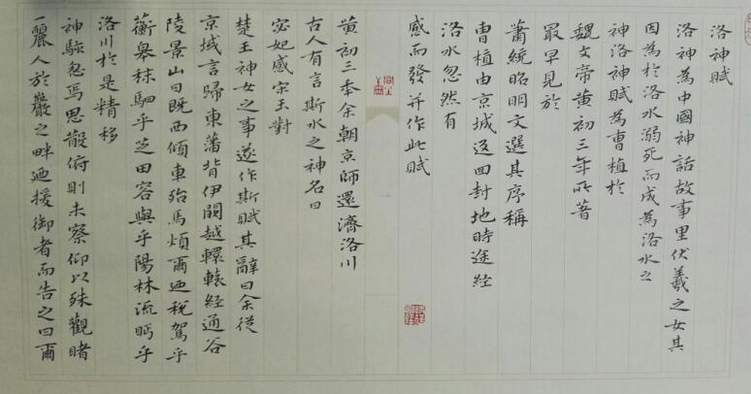 洛神賦
洛神為中國神話故事里伏羲之女其
因為於洛水溺死而成為洛水之
神洛神賦為曹植於
魏文帝黃初三年所著
最早見於
蕭統昭明文選其序稱
曹植由京城返回封地時途經
洛水忽然有
感而發并作此賦
黃初三年余朝京師還濟洛川
古人有言斯水之神名曰
宓妃感宋玉對
楚王神女之事遂作斯賦其辭曰余從
京域言歸東蕃背伊闕越轘轅經通谷
陵景山日既西傾車殆馬煩爾迺稅駕乎
蘅皋秣駟乎芝田容與乎陽林流眄乎
洛川於是精移
神駭忽焉思散俯則未察仰以殊觀睹
一麗人於巖之畔迺援御者而告之曰爾